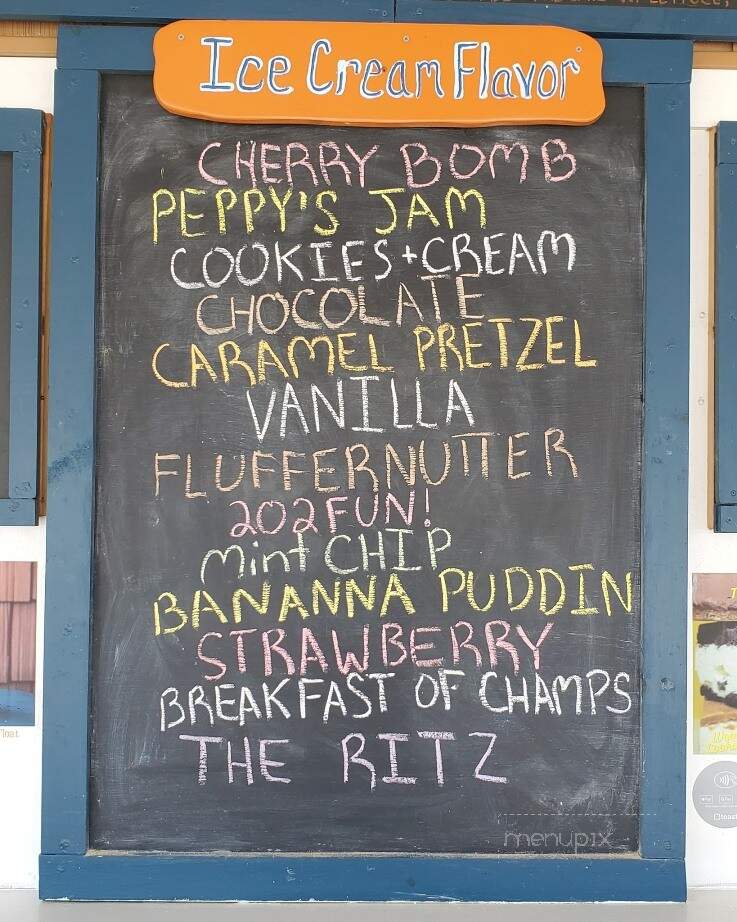 Ice Cream Flavor
CHERRY BOMB
PEPPY'S JAM
COOKIES+CREAM
CHOCOLATE
CARAMEL PRETZEL
VANILLA
FLUFFERNUTTER
202FUN!
Mint CHIP
BANANNA PUDDIN
STRAWBERRY
BREAKFAST OF CHAMPS
THE RITZ
menupix